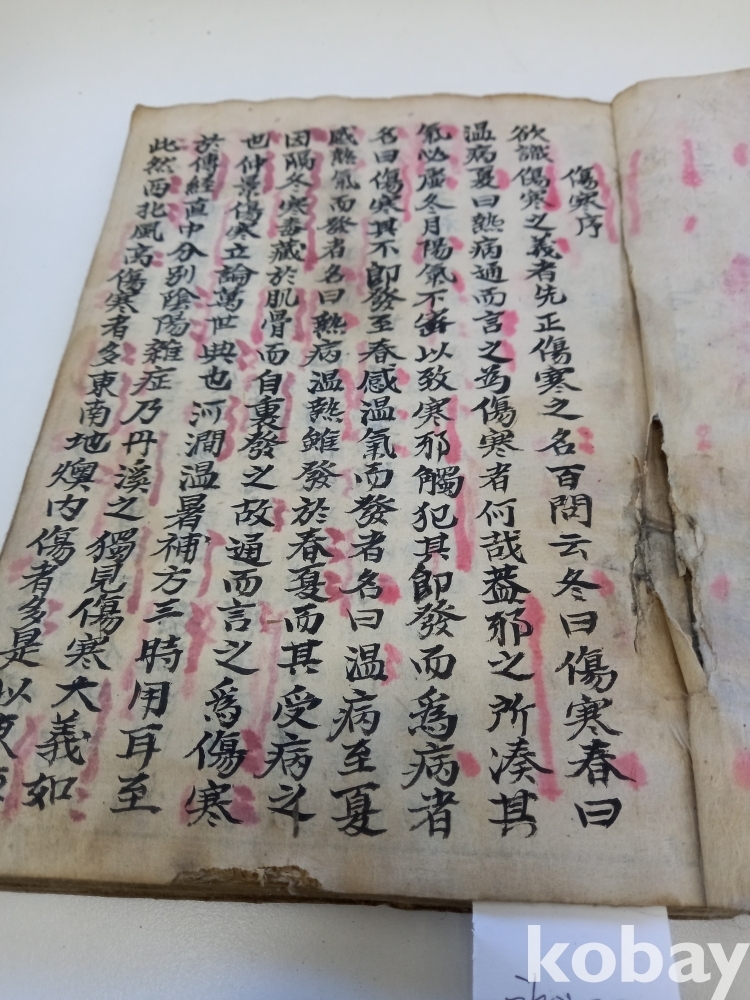 傷寒序
欲識傷寒之義者先正傷寒之名百問云冬曰傷寒春曰
温病夏曰熱病通而言之為傷寒者何哉蓋邪之所湊其
氣必虛冬月陽氣不密以致寒邪觸犯其即發而爲病者
名曰傷寒其不即發至春感温氣而發者名曰温病至夏
感熱氣而發者名曰熱病温熱雖發於春夏而其受病之
因隔冬寒毒藏於肌骨而自裏發之故通而言之爲傷寒
也仲景傷寒立論萬世典也河澗温暑補方三時用耳至
於傳經直中分別陰陽雜症乃丹溪之獨見傷寒大義如
此然西北風高傷寒者多東南地燠内傷者多是以
kobay